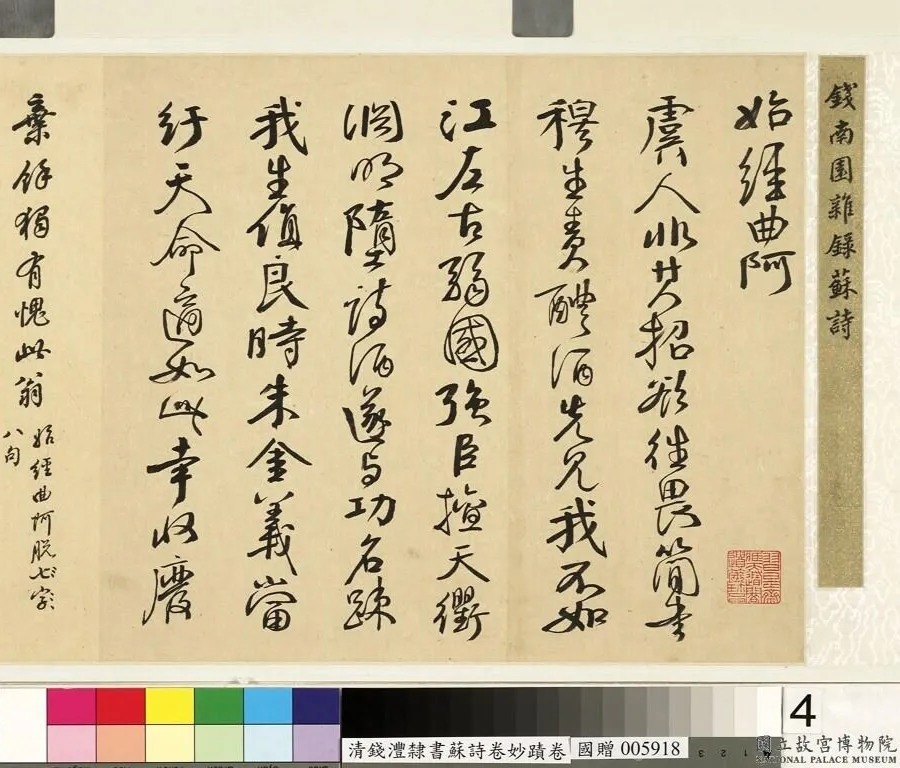 錢南園雜錄蘇詩
始經曲阿
虞人非其招欲往畏簡書
穆生責醴酒先見我不如
江左古弱國強臣擅天衢
淵明墮詩酒遂與功名疎
我生值良時朱金義當
紆天命適如此幸收廢
棄餘獨有愧此翁
始經曲阿脫七字
八句
4
清錢灃隸書蘇詩卷妙蹟卷 國贈 005918
國立故宮博物院
NATIONAL PALACE MUSEUM